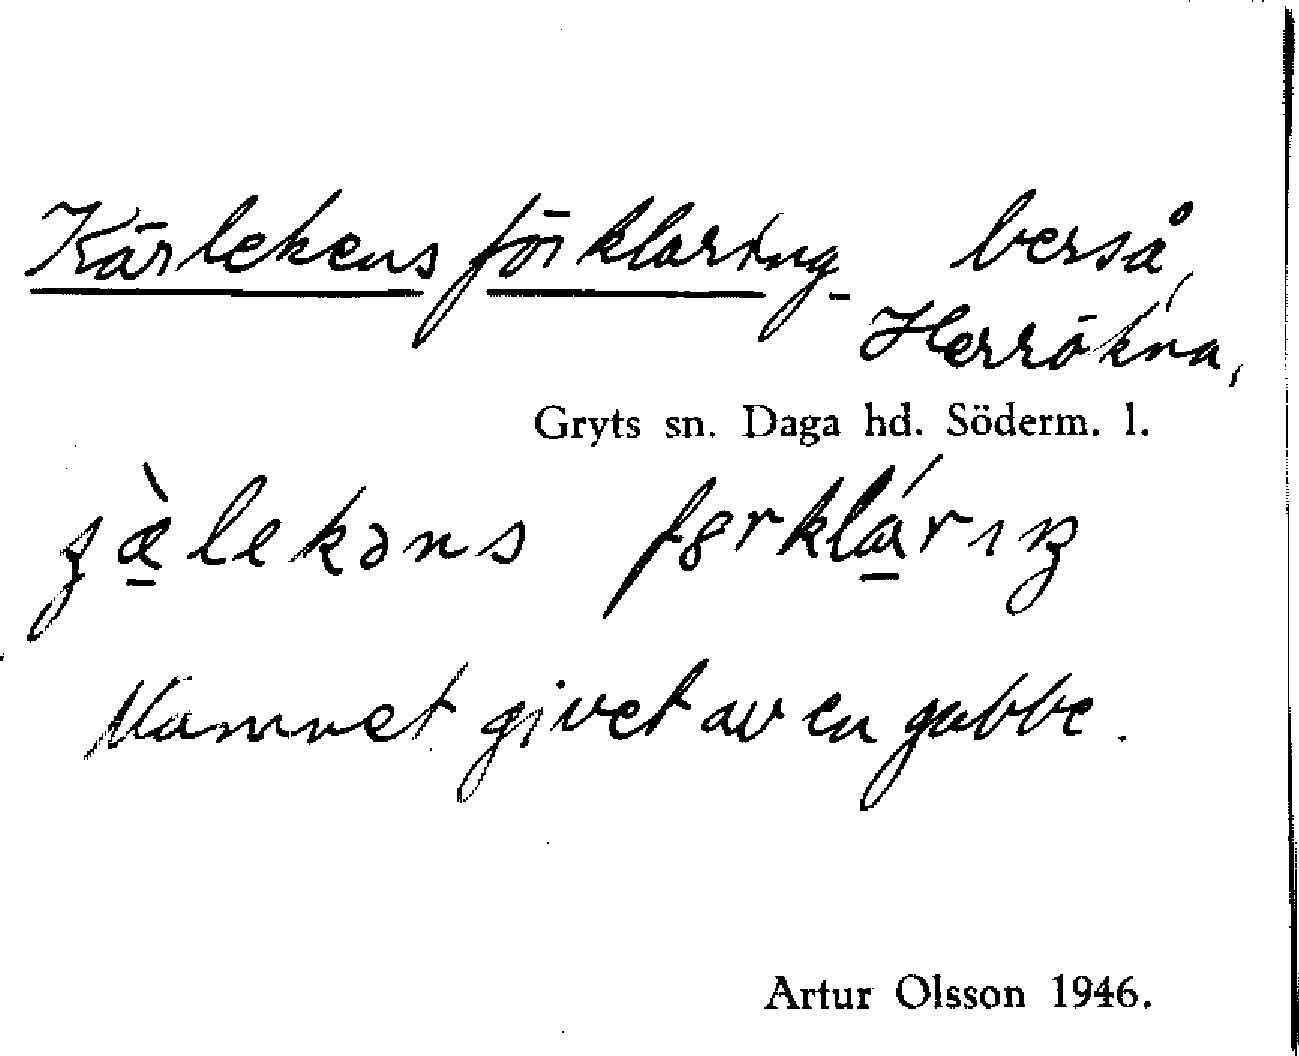 Kärlekens förklaring berså,
Herrökna,
Gryts sn. Daga hd. Söderm. l.
Namnet givet av en gubbe.
Artur Olsson 1946.